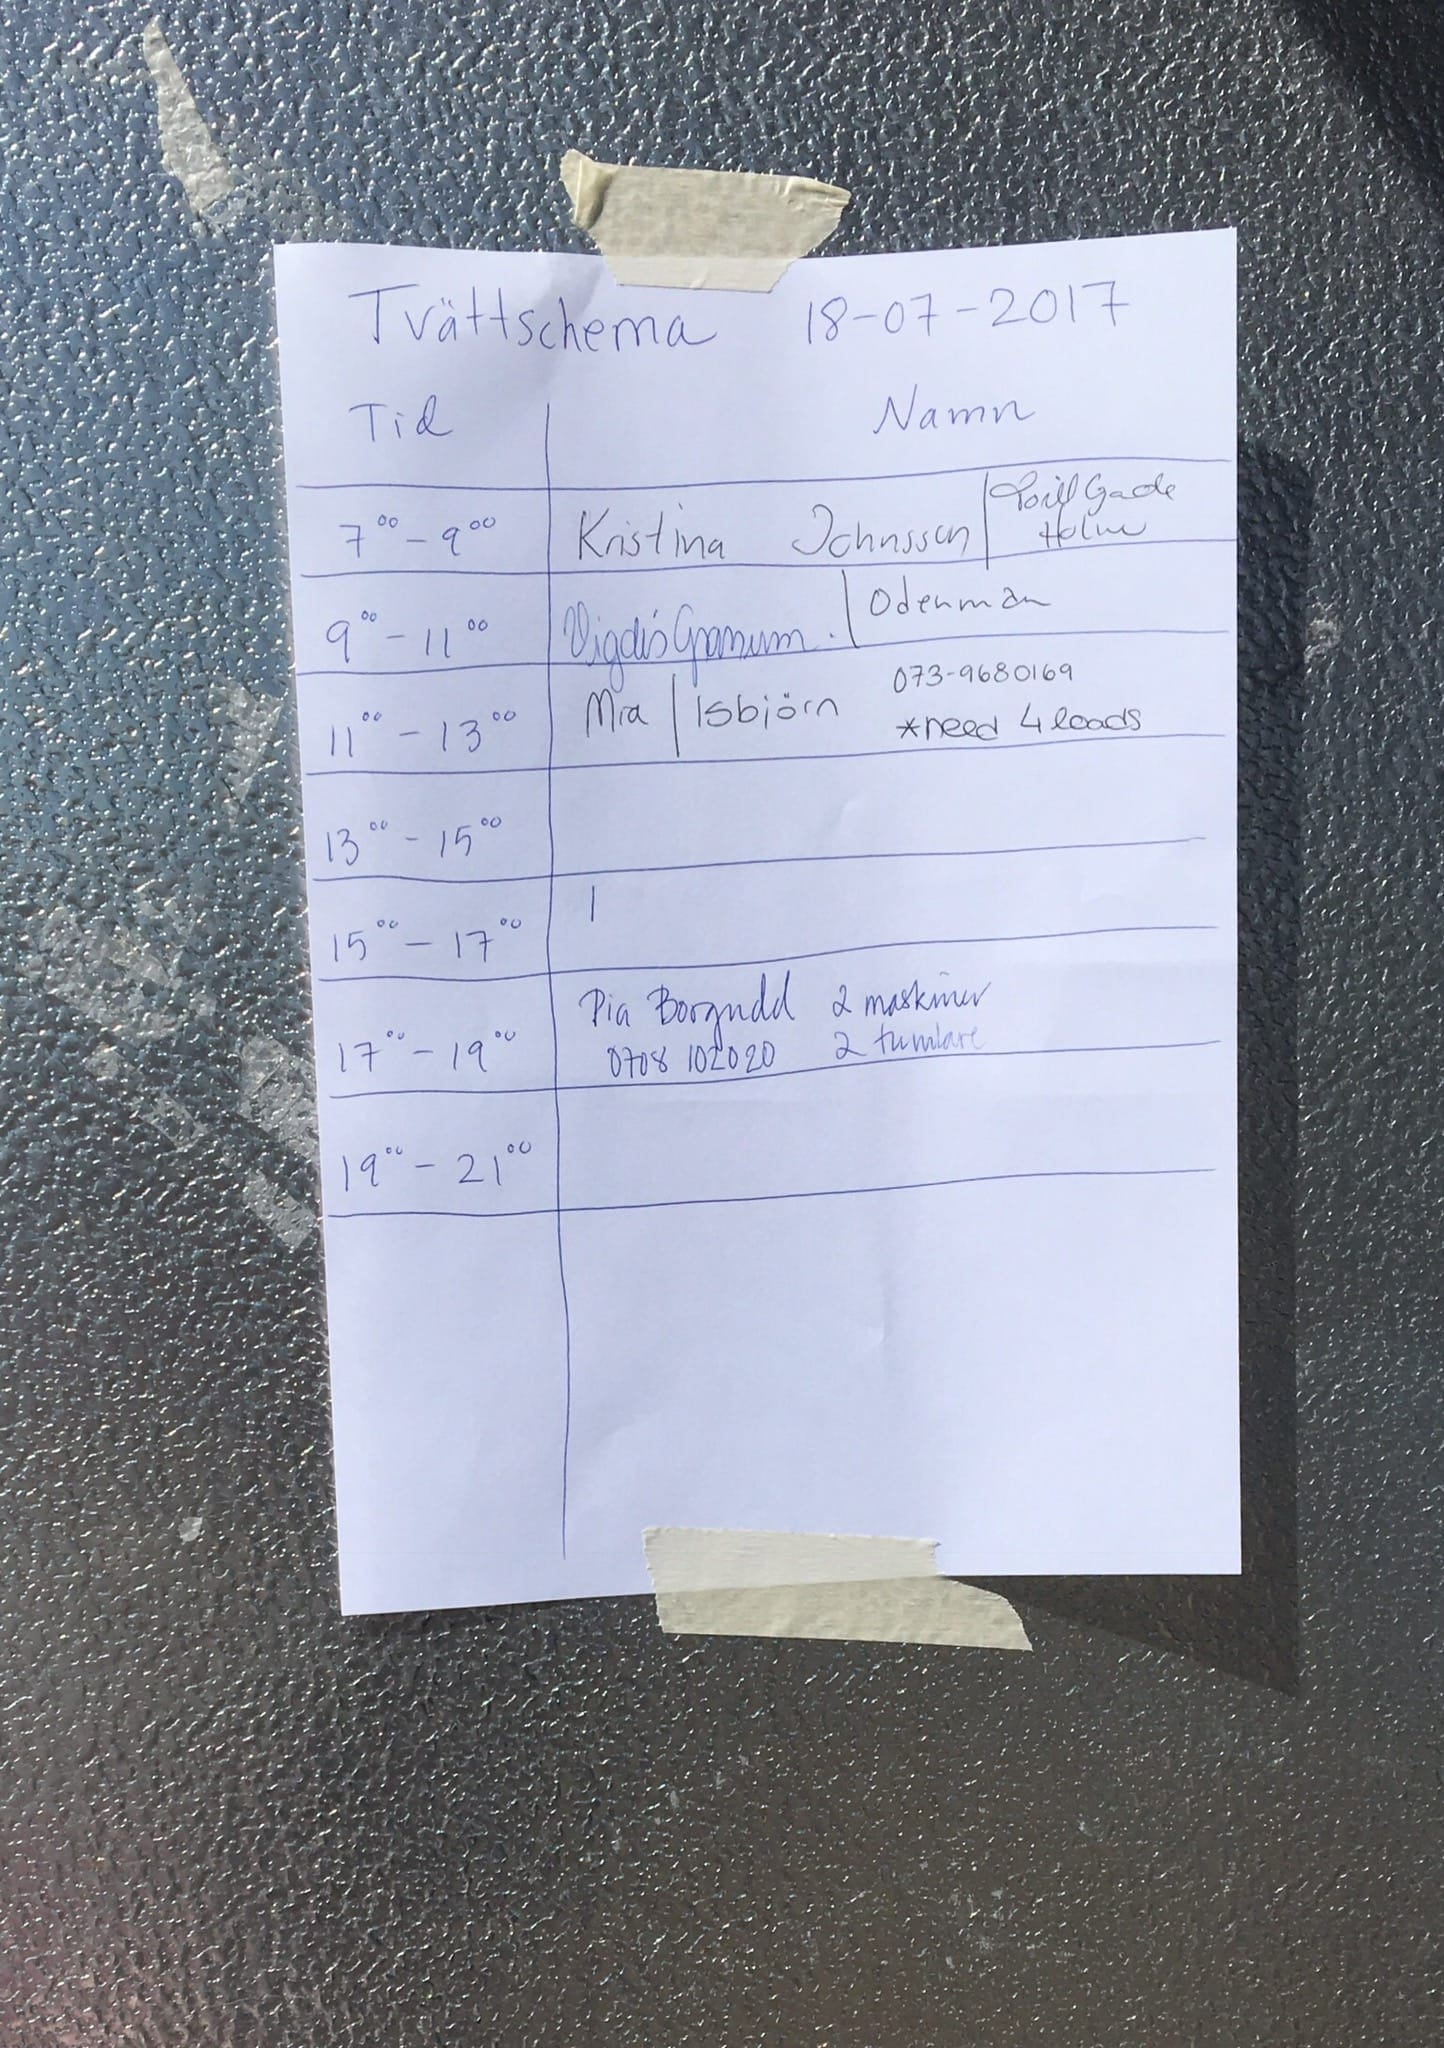 Tvättschema 18-07-2017
Tid Namn
7⁰⁰ - 9⁰⁰ Kristina Johnsson / Gade
Holm
9⁰⁰ - 11⁰⁰ Vigdis Granum. / Odenman
11⁰⁰ - 13⁰⁰ Mia / Isbjörn 073-9680169
*need 4 loads
13⁰⁰ - 15⁰⁰
15⁰⁰ - 17⁰⁰
17⁰⁰ - 19⁰⁰ Pia Borgudd 2 maskiner
0708 102020 2 tumlare
19⁰⁰ - 21⁰⁰